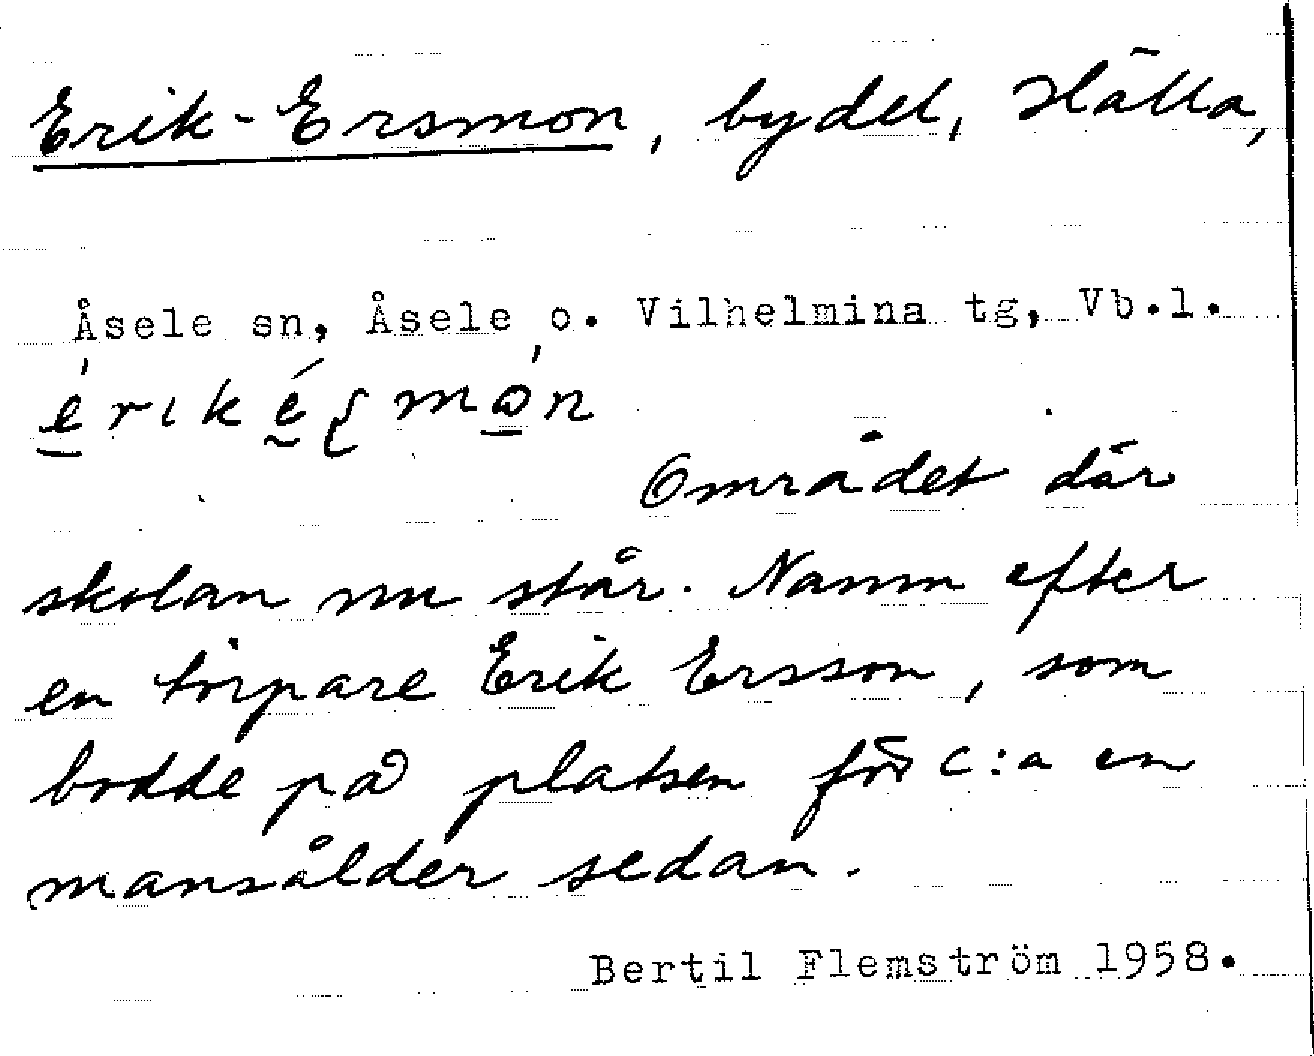 Erik-Ersmon, bydel, Hälla,
Åsele sn, Åsele o. Vilhelmina tg, Vb.l.
Området där
skolan nu står. Namn efter
en torpare Erik Ersson, som
bodde på platsen för c:a en
mansålder sedan.
Bertil Flemström 1958.